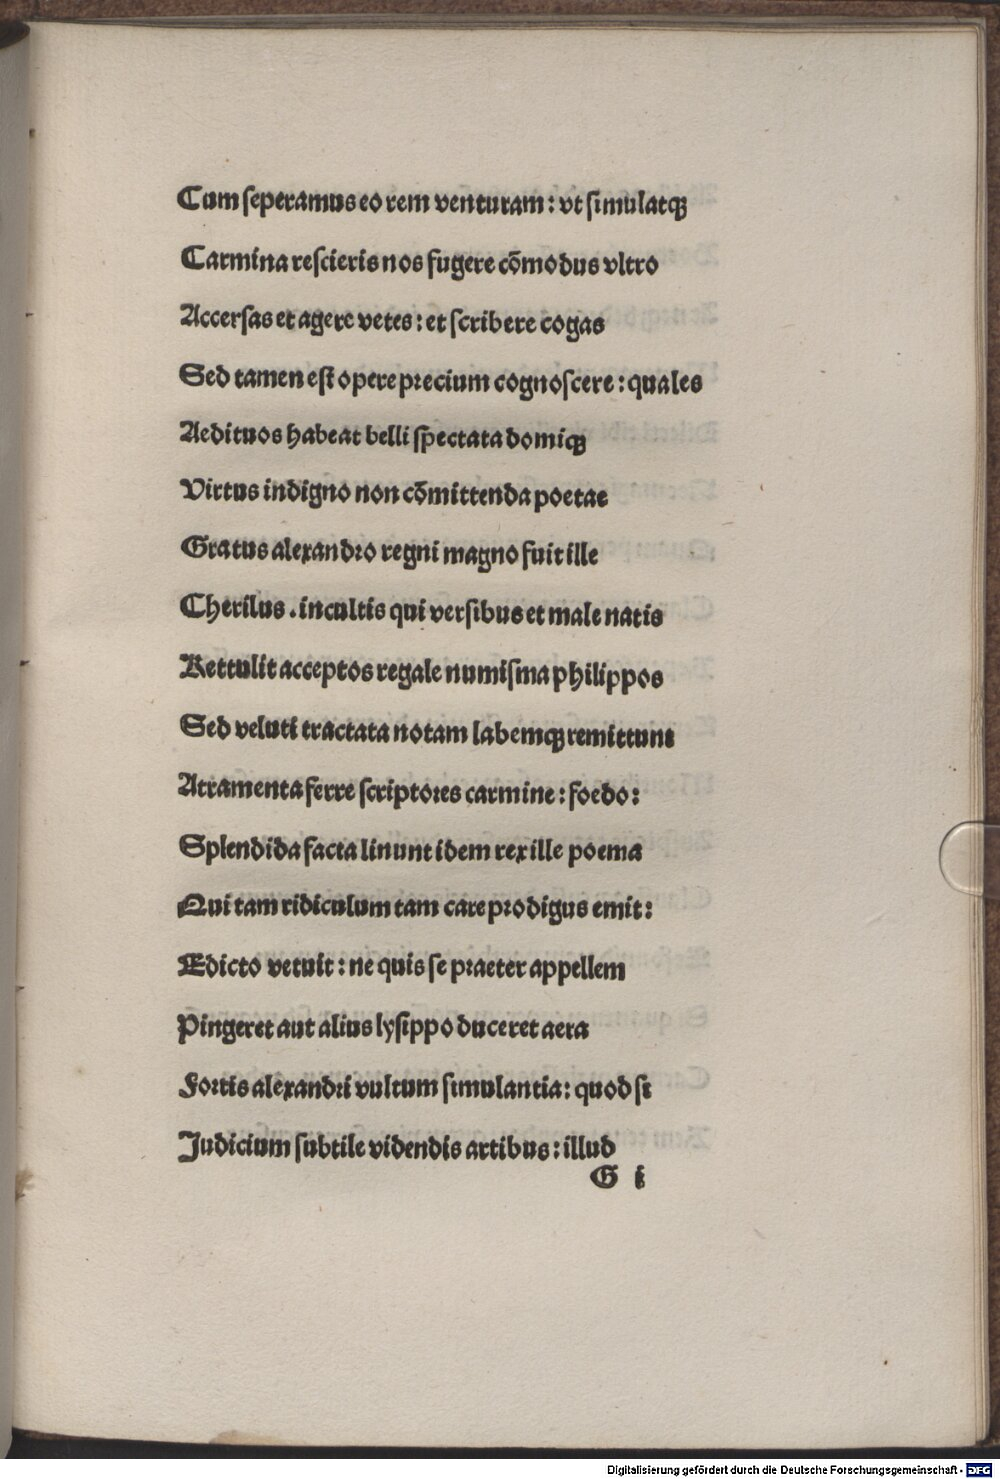 Cum ſeperamus eo rem venturam : vt ſimulatqꝫ
Carmina reſcieris nos fugere cōmodus vltro
Accerſas et agere vetes : et ſcribere cogas
Sed tamen eſt opere precium cognoſcere : quales
Aedituos habeat belli ſpectata domiqꝫ
Virtus indigno non cōmittenda poetae
Gratus alexandro regni magno fuit ille
Cherilus . incultis qui verſibus et male natis
Rettulit acceptos regale numiſma philippos
Sed veluti tractata notam labemqꝫ remittunt
Atramenta ferre ſcriptores carmine : foedo :
Splendida facta linunt idem rex ille poema
Qui tam ridiculum tam care prodigus emit :
Edicto vetuit : ne quis ſe praeter appellem
Pingeret aut alius lyſippo duceret aera
Fortis alexandri vultum ſimulantia : quod ſi
Judicium ſubtile videndis artibus : illud
G i
Digitalisierung gefördert durch die Deutsche Forschungsgemeinschaft - DFG